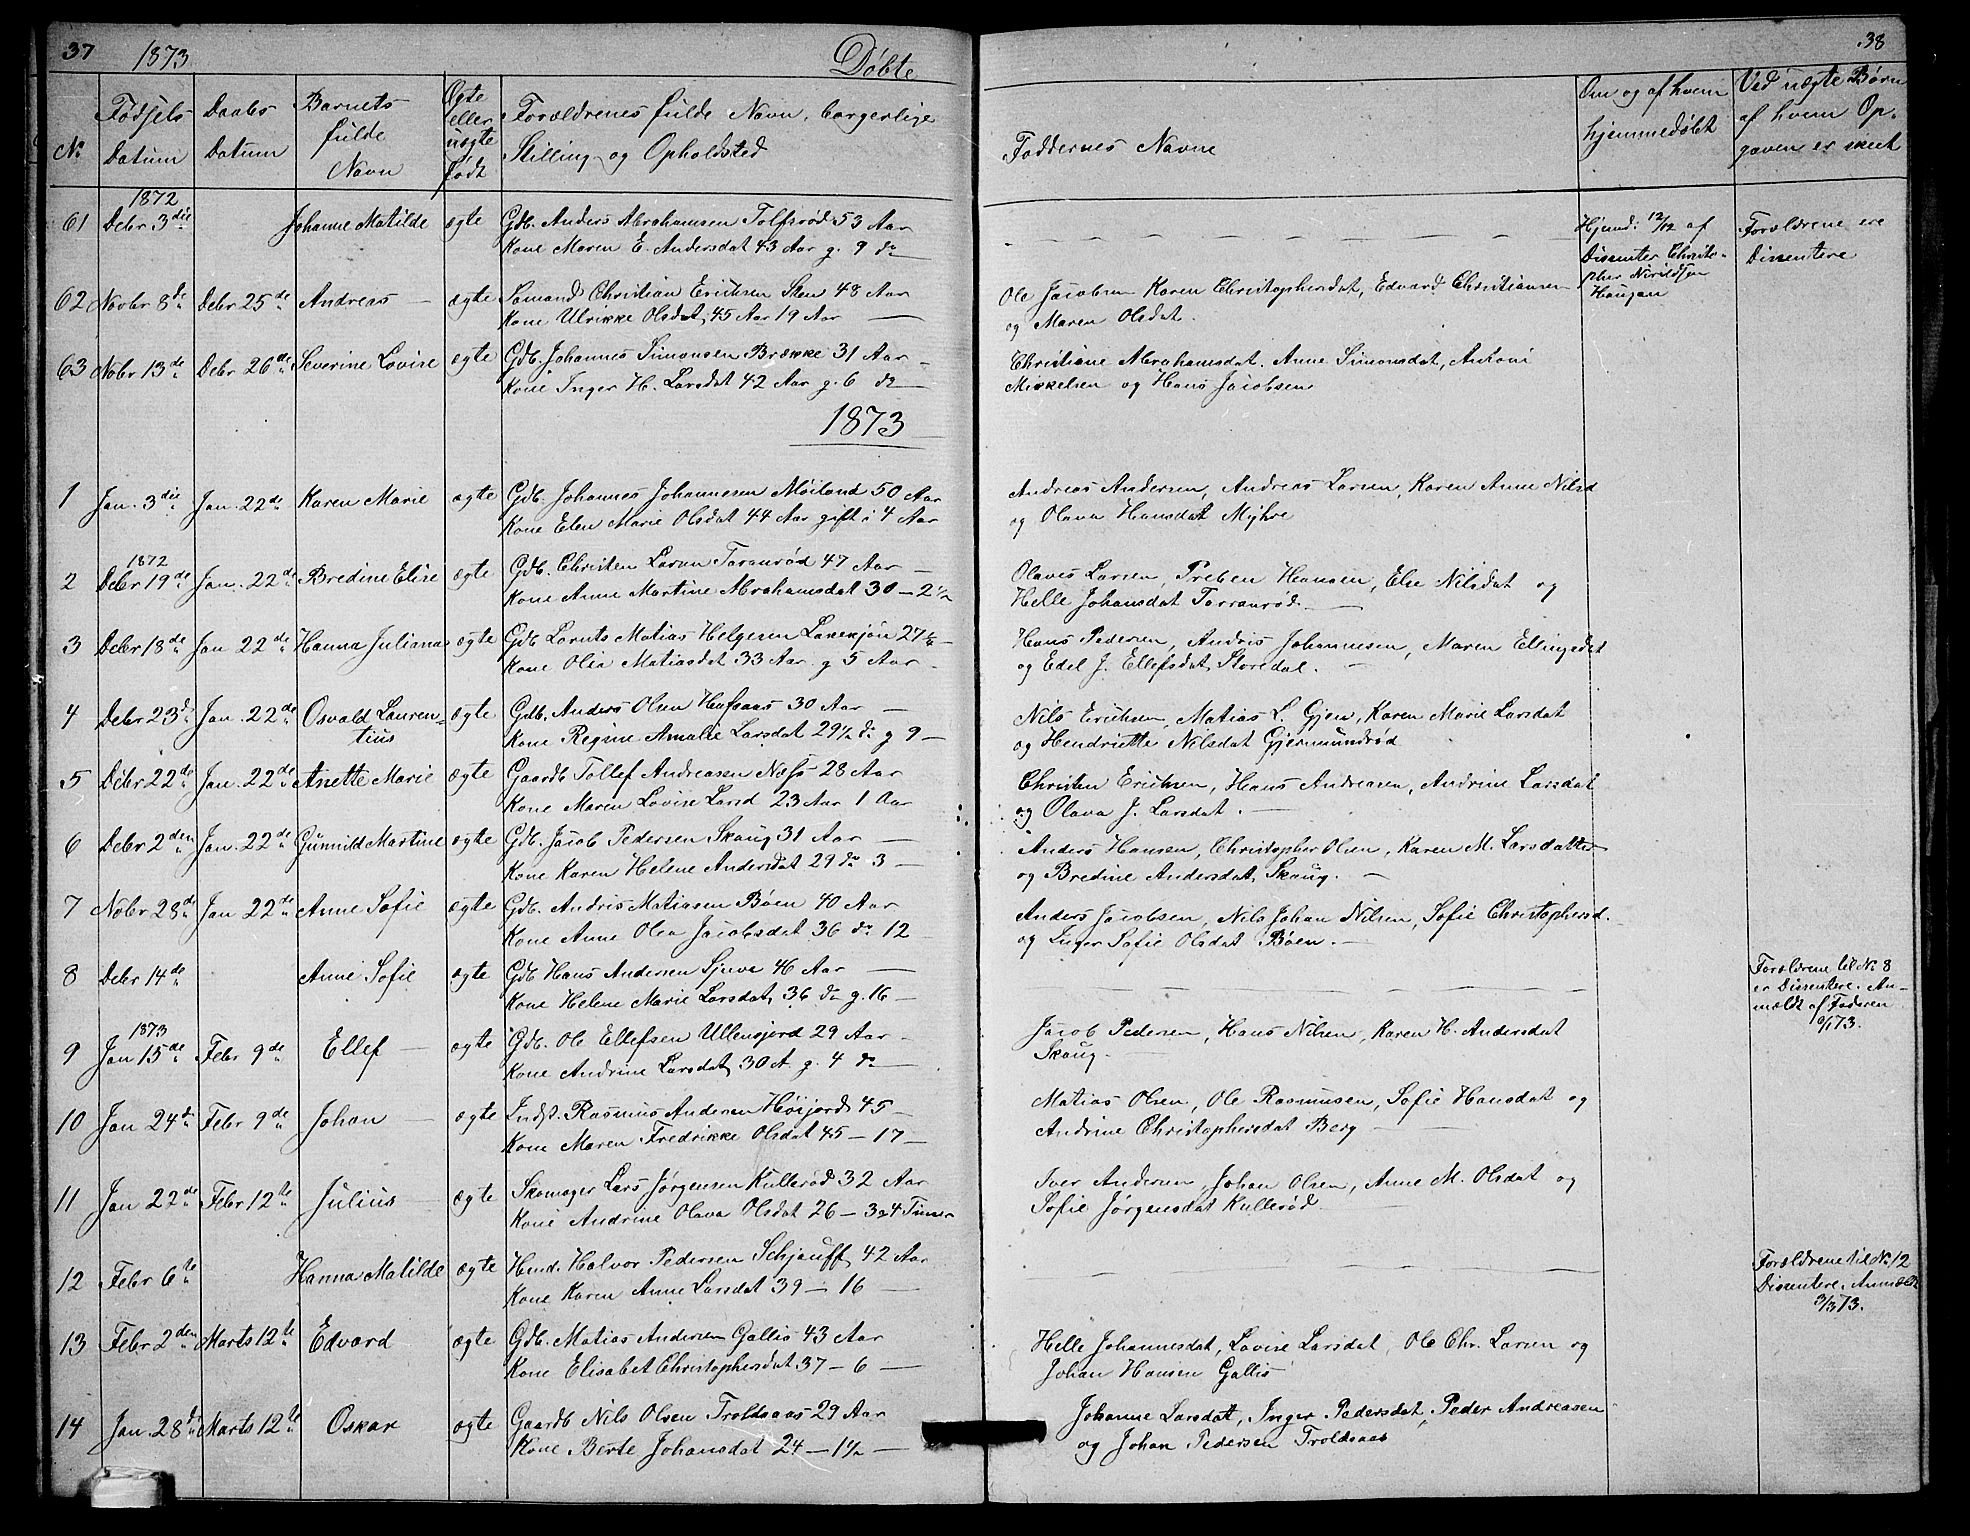 37 1873 Døbte
38
No
Fødsels Datum
Daabs Datum
Barnets fulde Navn
Ægte eller uægte født
Forældrenes fulde Navn, borgerlige
Stilling og Opholdsted
Faddernes Navne
Om og af hvem hjemmedøbt
Ved uægte Børn af hvem Opgaven er skeet
1872
61 Debr 3die Johanne Matilde ægte Gdb. Anders Abrahamsen Tolfsrød 53 Aar
Kone Maren E. Andersdat 43 Aar g. 9 do
Hjemd: 12/12 af Dissenter Christopher Haugan
Forældrene ere Dissentere
62 Novbr 8de Debr 25de Andreas ægte Sømand Christian Erichsen Sten 48 Aar
Kone Ulrikke Olsdat 45 Aar 19 Aar
Ole Jacobsen Karen Christophersdat, Edvard Christiansen
og Maren Olsdat.
63 Nobr 13de Debr 26de Severine Lovise ægte Gdb. Johannes Simonsen Brække 31 Aar
Kone Inger H. Larsdat 42 Aar g. 6 do
Christiane Abrahamsdat. Anne Simonsdat, Antoni
Mikkelsen og Hans Jacobsen
1873
1 Jan. 3die Jan. 22de Karen Marie ægte Gdb. Johannes Johannesen Møiland 50 Aar
Kone Elen Marie Olsdat 44 Aar gift i 4 Aar
Andreas Andersen, Andreas Larsen, Karen Anne Nilsd
og Olava Hansdat Myhre
1872
2 Debr 19de Jan. 22de Bredine Elise ægte Gdb. Christen Larsen Taranrød 47 Aar
Kone Anne Martine Abrahamsdat 30 - 2 1/2
Olaves Larsen, Preben Hansen, Else Nilsdat og
Helle Johansdat Tarranrød.
3 Debr 18de Jan 22de Hanna Juliana ægte Gdb Laruts Matias Helgesen 27 1/2
Kone Olia Matiasdat 33 Aar g 5 Aar
Hans Pedersen, Andris Johannesen, Maren Ellingsdat
og Edel J. Ellefsdat Storedal.
4 Debr 23d Jan. 22de Osvald Laurentius ægte Gdb. Anders Olsen Hafsaas 30 Aar
Kone Regine Amalie Larsdat 29 1/2 do g 9
Nils Erichsen, Matias L. Gjen, Karen Marie Larsdat
og Hendriette Nilsdat Gjermundrød
5 Debr 22de Jan. 22de Anette Marie ægte Gaardb Tollef Andreasen Næss 28 Aar
Kone Maren Lovise Larsd 23 Aar 1 Aar
Christen Erichsen, Hans Andreasen, Andrine Larsdat
og Olava J. Larsdat.
6 Debr 2den Jan. 22de Gunnild Martine ægte Gdb. Jacob Pedersen Skaug 31 Aar
Kone Karen Helene Andersdat 29 do 3
Anders Hansen, Christopher Olsen, Karen M. Larsdatter
og Bredine Andersdat Skaug.
7 Nobr 28d Jan 22de Anne Sofie ægte Gdb. Andris Matiasen Bøen 40 Aar
Kone Anne Olea Jacobsdat 36 do 12
Anders Jacobsen, Nils Johan Nilsen, Sofie Christophersd.
og Inger Sofie Olsdat Bøen.
8 Debr 14de Anne Sofie ægte Gdb Hans Andersen Sjuva 46 Aar
Kone Helene Marie Larsdat 36 do g. 16
Forældrene til No 8 er Dissentere. Anmældt af Faderen 9/1 73.
1873
9 Jan 15de Febr 9de Ellef ægte Gdb. Ole Ellefsen Ullensjord 29 Aar
Kone Andrine Larsdat 30 A. g. 4 do
Jacob Pedersen, Hans Nilsen, Karen H. Andersdat
Skaug.
10 Jan 24d Febr 9de Johan ægte Indst. Rasmus Andersen Høijord 45
Kone Maren Fredrikke Olsdat 45 - 17
Matias Olsen, Ole Rasmusen, Sofie Hansdat og
Andrine Christophersdat Berg
11 Jan 22de Febr 12te Julius ægte Skomager Lars Jørgensen Kullerød 32 Aar
Kone Andrine Olava Olsdat 26 -
Iver Andersen, Johan Olsen, Anne M. Olsdat og
Sofie Jørgensdat Kullerød
12 Febr 6te Hanna Matilde ægte Hmd. Halvor Pedersen Schjauff 42 Aar
Kone Karen Anne Larsdat 39 - 16
Forældrene til No 12 Dissentere. Anmældt 3/3 73.
13 Febr 2den Marts 12te Edvard ægte Gdb. Matias Andersen Gallis 43 Aar
Kone Elisabet Christophersdat 37 - 6
Helle Johannesdat, Lovise Larsdat, Ole Chr. Larsen og
Johan Hansen Gallis
14 Jan. 28de Marts 12te Oskar ægte Gaardb Nils Olsen Troldsaas 29 Aar
Kone Berte Johansdat 24 - 1 1/2
Johanne Larsdatt, Inger Pedersdat, Peder Andreasen
og Johan Pedersen Troldsaas